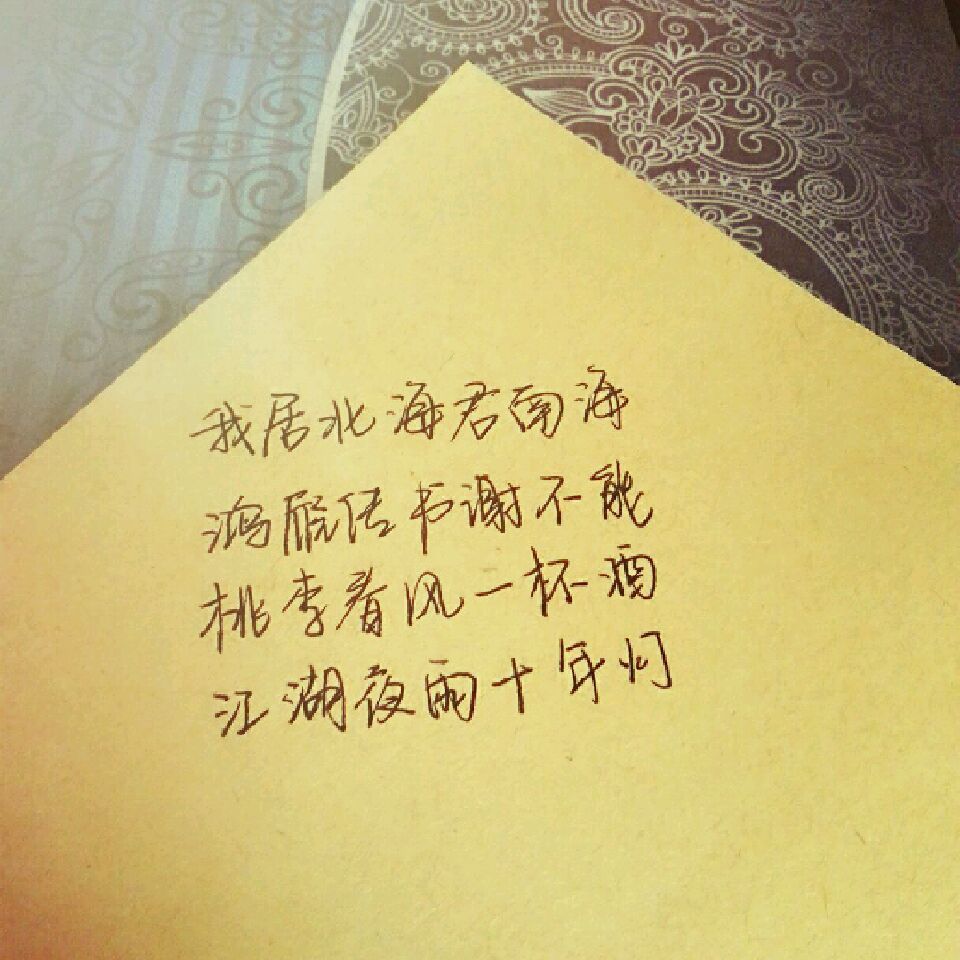 我居北海君南海
鸿雁传书谢不能
桃李春风一杯酒
江湖夜雨十年灯